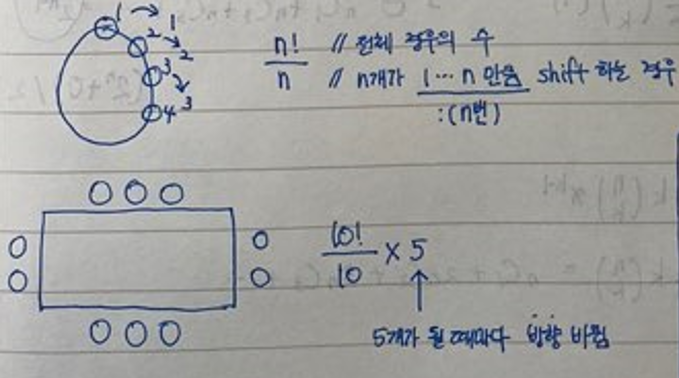 1 → 1
2 → 2
3 → 3
4
n! // 전체 경우의 수
n // n개가 1 … n 만큼 shift 하는 경우
: (n번)
10!
10 × 5
5개가 될 때마다 방향 바뀜